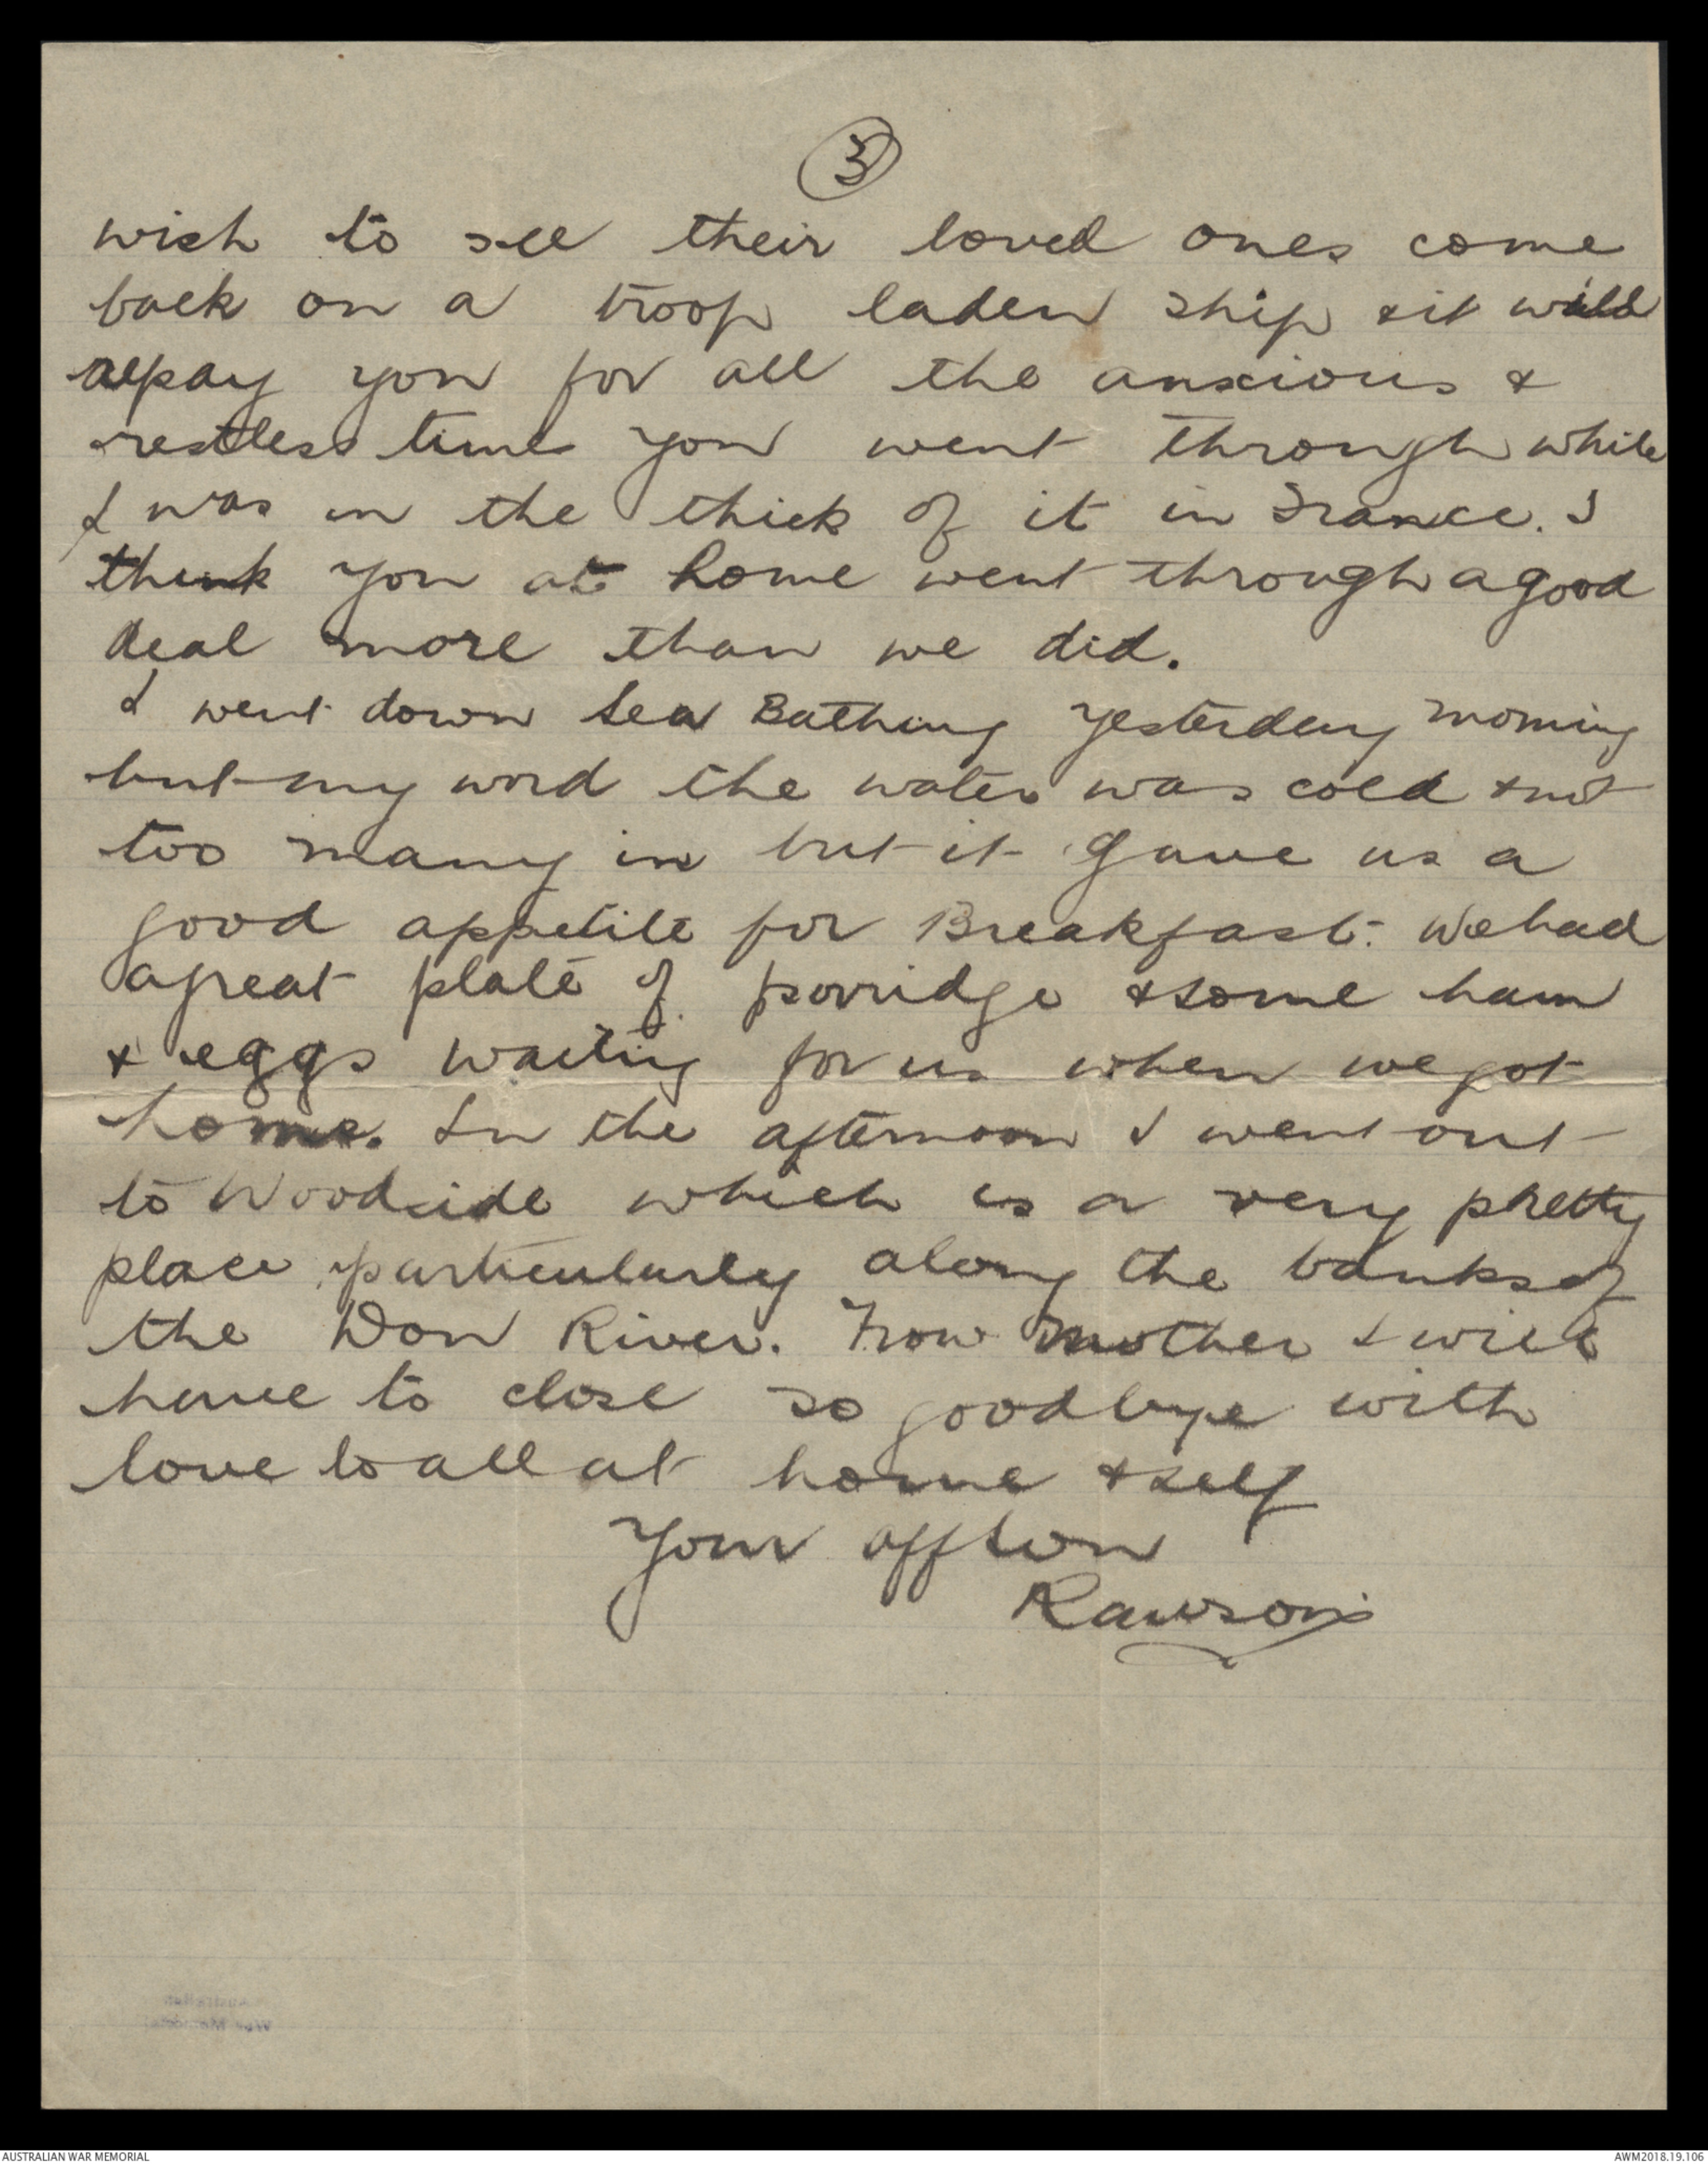 3
wish to see their loved ones come
back on a troop laden ship & it will
repay you for all the anxious &
restless time you went through while
I was in the thick of it in France. I
think you at home went through a good
deal more than we did.
I went down Sea Bathing yesterday morning
but my word the water was cold & not
too many in but it gave us a
good appetite for Breakfast. We had
a great plate of porridge & some ham
& eggs waiting for us when we got
home. In the afternoon I went out
to Woodside which is a very pretty
place particularly along the banks of
the Don River. Now Mother I will
have to close so goodbye with
love to all at home & self
Your aff son
Rawson
Australian
War Memorial
AUSTRALIAN WAR MEMORIAL
AWM2018.19.106